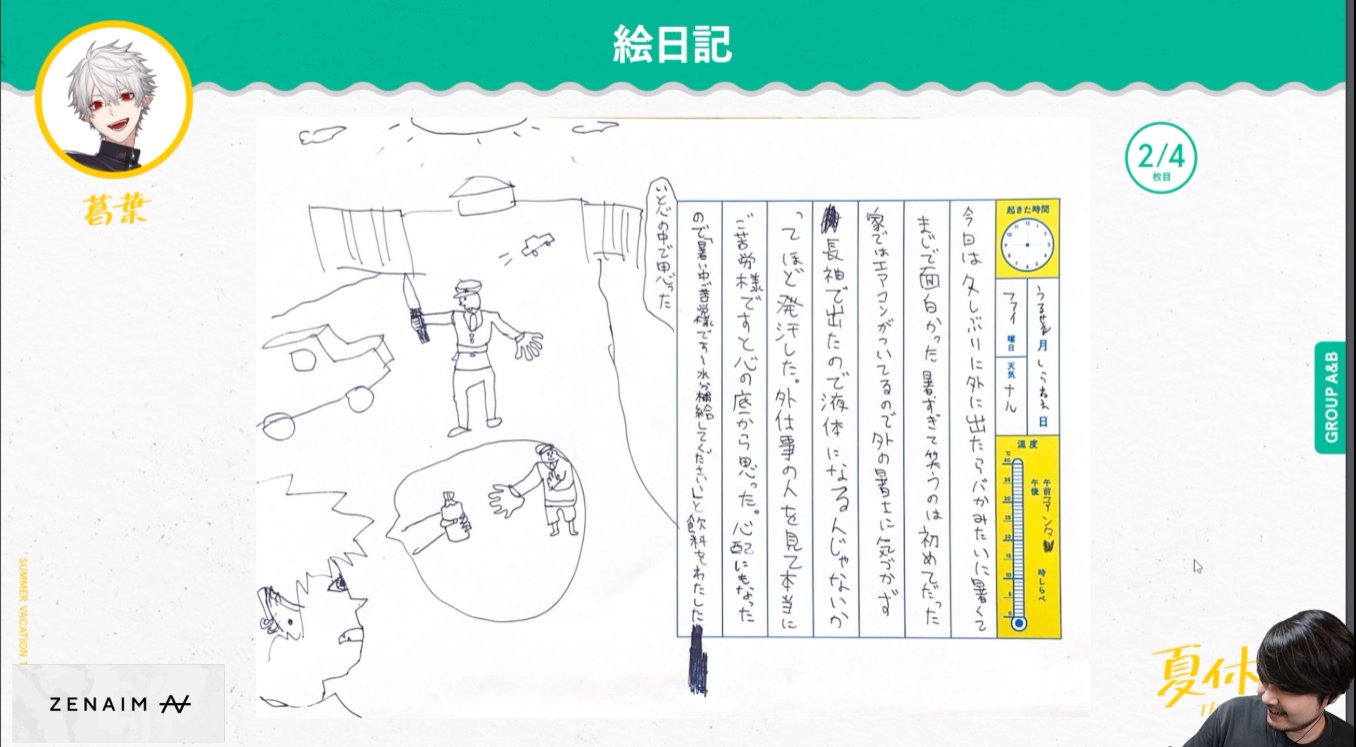 絵日記
葛葉
2/4
枚目
GROUP A&B
起きた時間
月
日
ファイ
曜日
天気
ナル
温度
午前
午後
時しらべ
今日は久しぶりに外に出たらバカみたいに暑くて
まじで面白かった暑すぎて笑うのは初めてだった
家ではエアコンがついてるので外の暑さに気づかず
長袖で出たので液体になるんじゃないか
ってほど発汗した。外仕事の人を見て本当に
ご苦労様ですと心の底から思った。心配にもなった
ので「暑い中ご苦労様です〜水分補給してください」と飲料をわたした
いと心の中で思った
SUMMER VACATION
ZENAIM
夏休